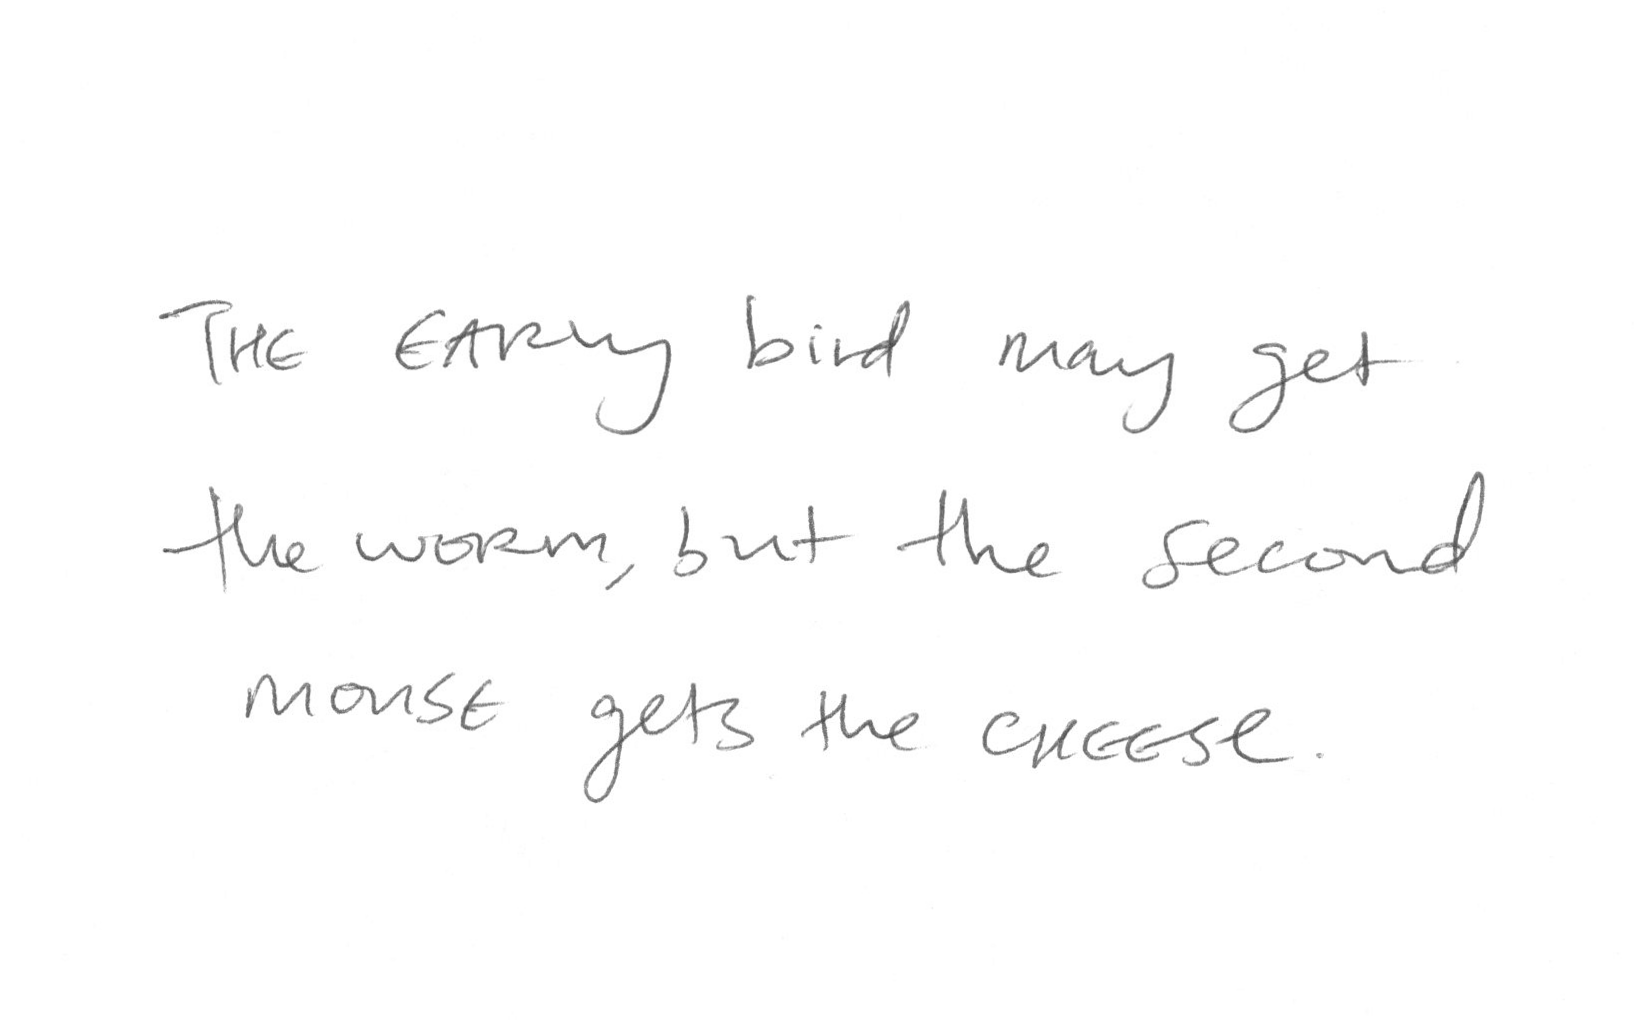 THE EARly bird may get
the worm, but the second
mouse gets the cheese.